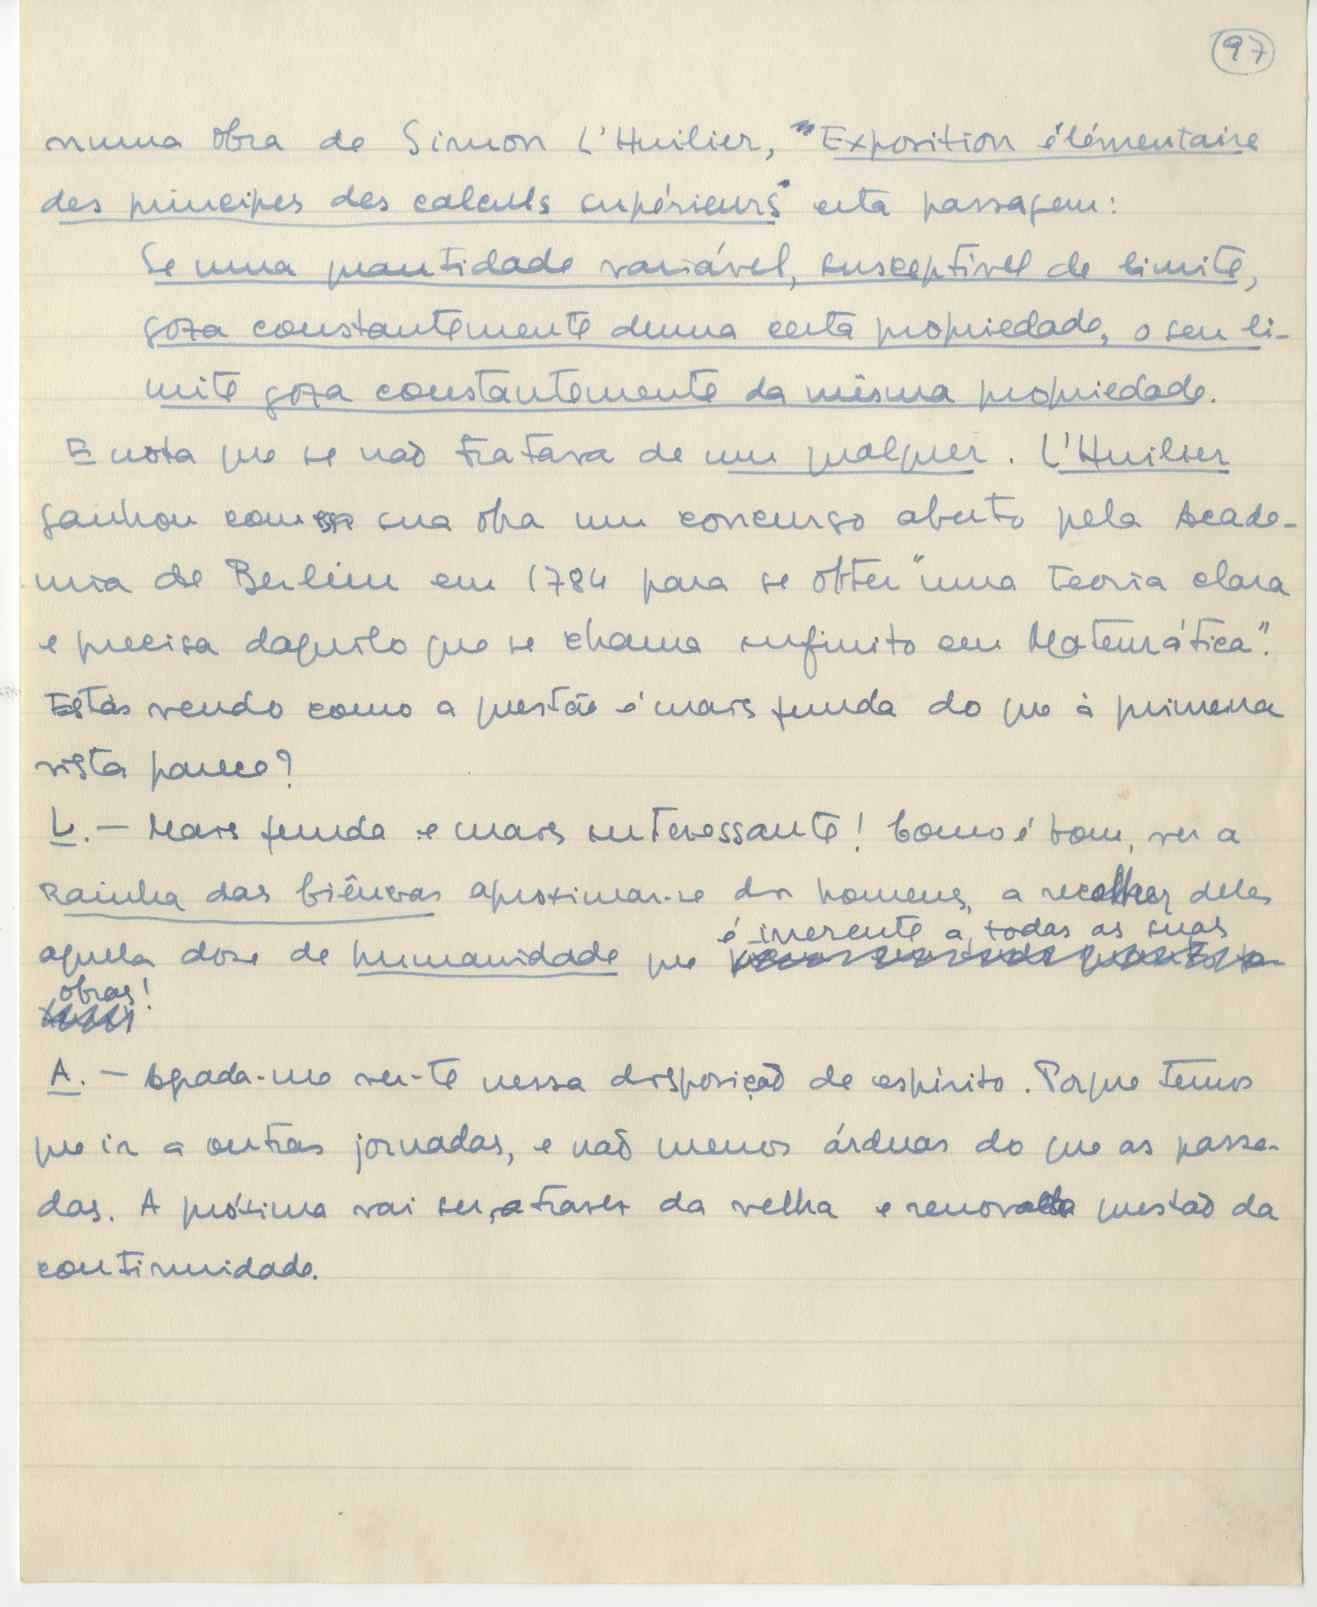 97
numa obra de Simon L'Huilier, "Exposition élémentaire
des principes des calculs supérieurs" esta passagem:
Se uma quantidade variável, susceptível de limite,
goza constantemente duma certa propriedade, o seu li-
mite goza constantemente da mesma propriedade.
E nota que se não tratava de um qualquer. L'Huilier
ganhou com essa sua obra um concurso aberto pela Acade-
mia de Berlim em 1784 para se obter "uma teoria clara
e precisa daquilo que se chama infinito em Matemática".
Estás vendo como a questão é mais funda do que à primeira
vista parece?
L. — Mais funda e mais interessante! Como é bom, ver a
Rainha das Ciências aproximar-se dos homens, a recolher deles
é inerente a todas as suas
aquela dose de humanidade que
obras!
A. — Agrada-me ver-te nessa disposição de espírito. Porque temos
que ir a outras jornadas, e não menos árduas do que as passa-
das. A próxima vai ser, através da velha e renovada questão da
continuidade.